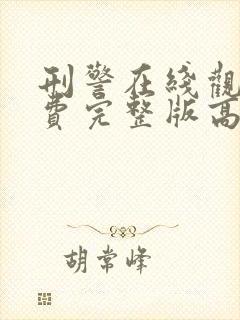 刑警在线觀
費完整版高
胡常峰